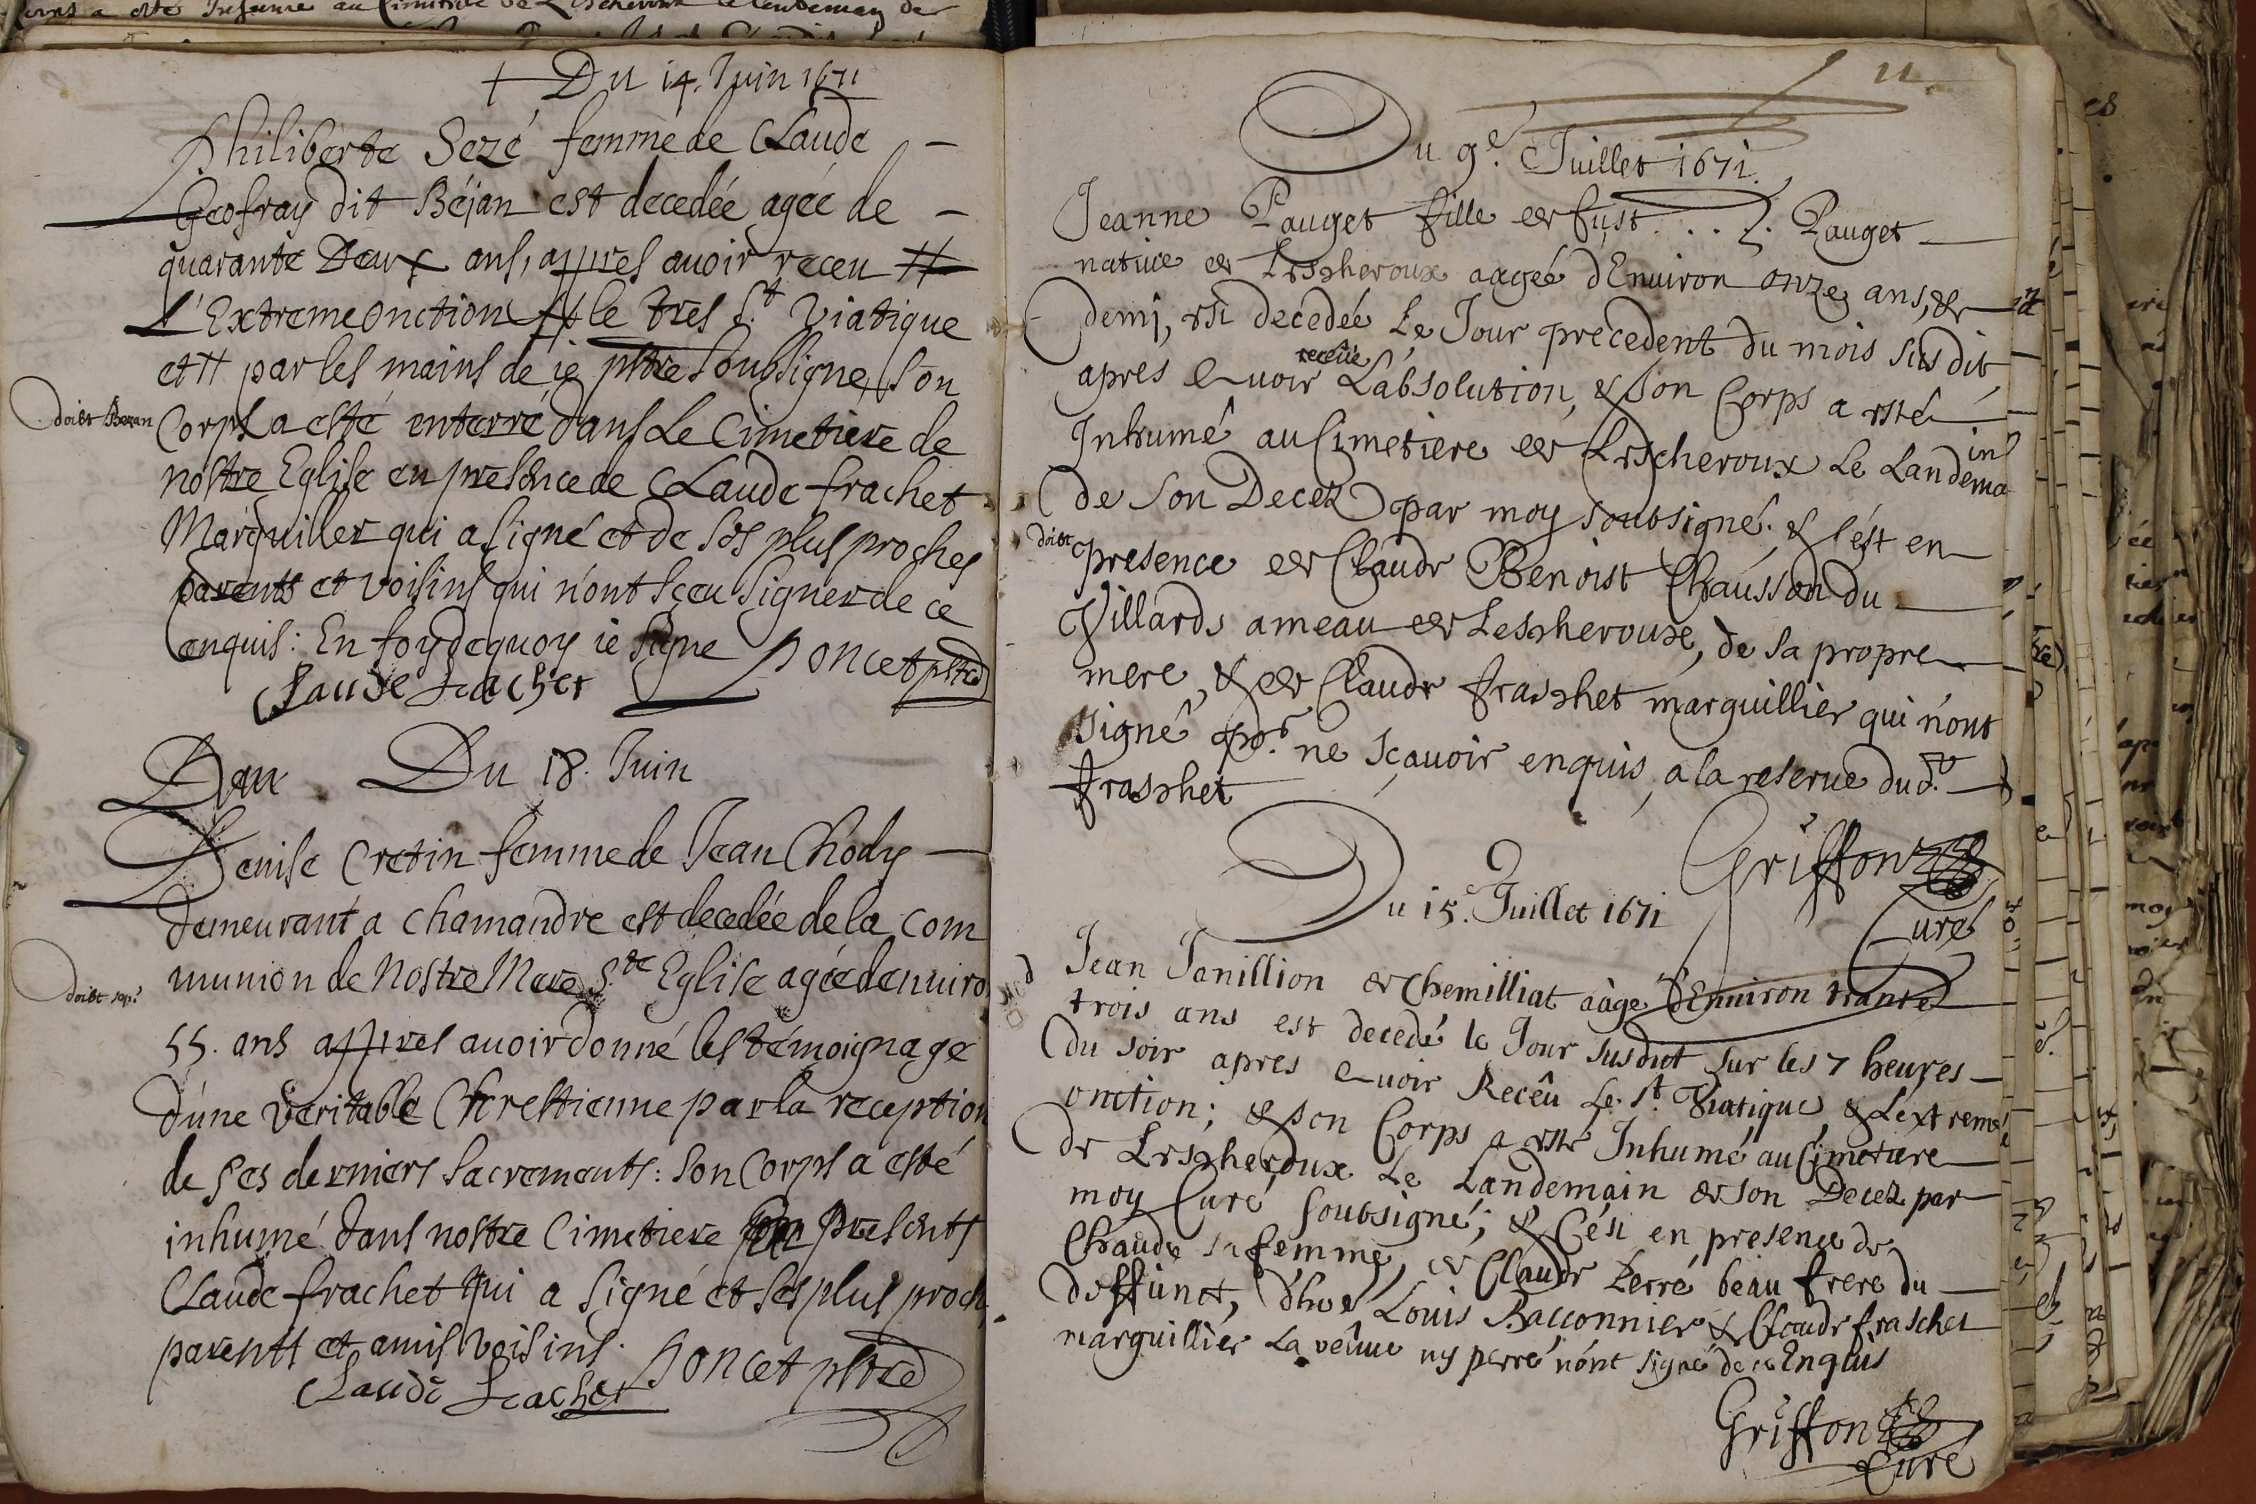 + Du 14. Juin 1671
Philiberte Sezé femme de Claude
Geofray dit Béjan est decedée agée de
quarante Deux ans, appres auoir receu #
L'Extreme onction # le tres St Viatique
et # par les mains de ie pbtre soubsigne, son
doibt Bezan
Corps a esté enterré dans Le Cimetiere de
nostre Eglise en presence de Claude frachet
Marguiller qui a signé et de ses plus proches
parents et voisins qui n'ont sceu signer de ce
enquis: En foy de quoy ie signe Poncet pbtre
Claude Frachet
Du 18. Juin
Denise Cretin femme de Jean Chody
demeurant a chamandre est decedée de la com
munion de Nostre Mere Ste Eglise agée denuiro
doibt
55. ans appres auoir donné les témoignage
d'une veritable Chrestienne par la reception
de ses derniers sacrements: son Corps a esté
inhumé dans nostre Cimetiere presents
Claude frachet qui a signé et ses plus proch
parents et amis voisins. Poncet pbtre
Claude Frachet
11
Du 9e. Juillet 1671.
Jeanne Pauget fille de fust . . . Pauget
natiue de Lescheroux aagée d'Enuiron onze ans, &
demi, est decedée Le Jour precedent du mois susdit
apres auoir receüe L'absolution, & son Corps a esté
Inhumé au Cimetiere de Lescheroux Le Landemain
de son Decez par moy soubsigné. & c'ést en
doibt
presence de Claude Benoist Chausson du
Villards ameau de Lescheroux, de sa propre
mere, & de Claude fraschet marguillier qui n'ont
signé pr. ne sçauoir enquis, a la reserue dud.
fraschet
Griffon
Curé
Du 15e. Juillet 1671
Jean Janillion de Chemilliat aàgé d'Enuiron trante
trois ans est decedé le Jour susdict sur les 7 heures
du soir apres auoir Recêu Le St. Viatique, & L'extreme
onction; & son Corps a esté Inhumé au Cimetiere
de Lescheroux Le Landemain de son Decez par
moy Curé soubsigné; & C'ést en presence de
Claude sa femme, de Claude Perré beau frere du
deffunct, d'hoe. Louis Bacconnier & Claude fraschet
marguillier La veûue ny perré n'ónt signé de ce Enquis
Griffon
Curé